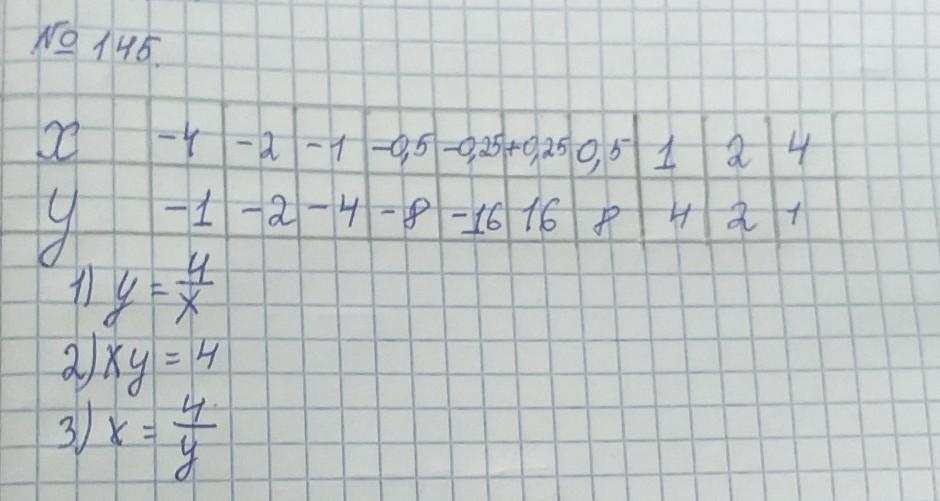 № 145.
x -4 -2 -1 -0,5 -0,25 +0,25 0,5 1 2 4
y -1 -2 -4 -8 -16 16 8 4 2 1
1) y = 4/x
2) xy = 4
3) x = 4/y